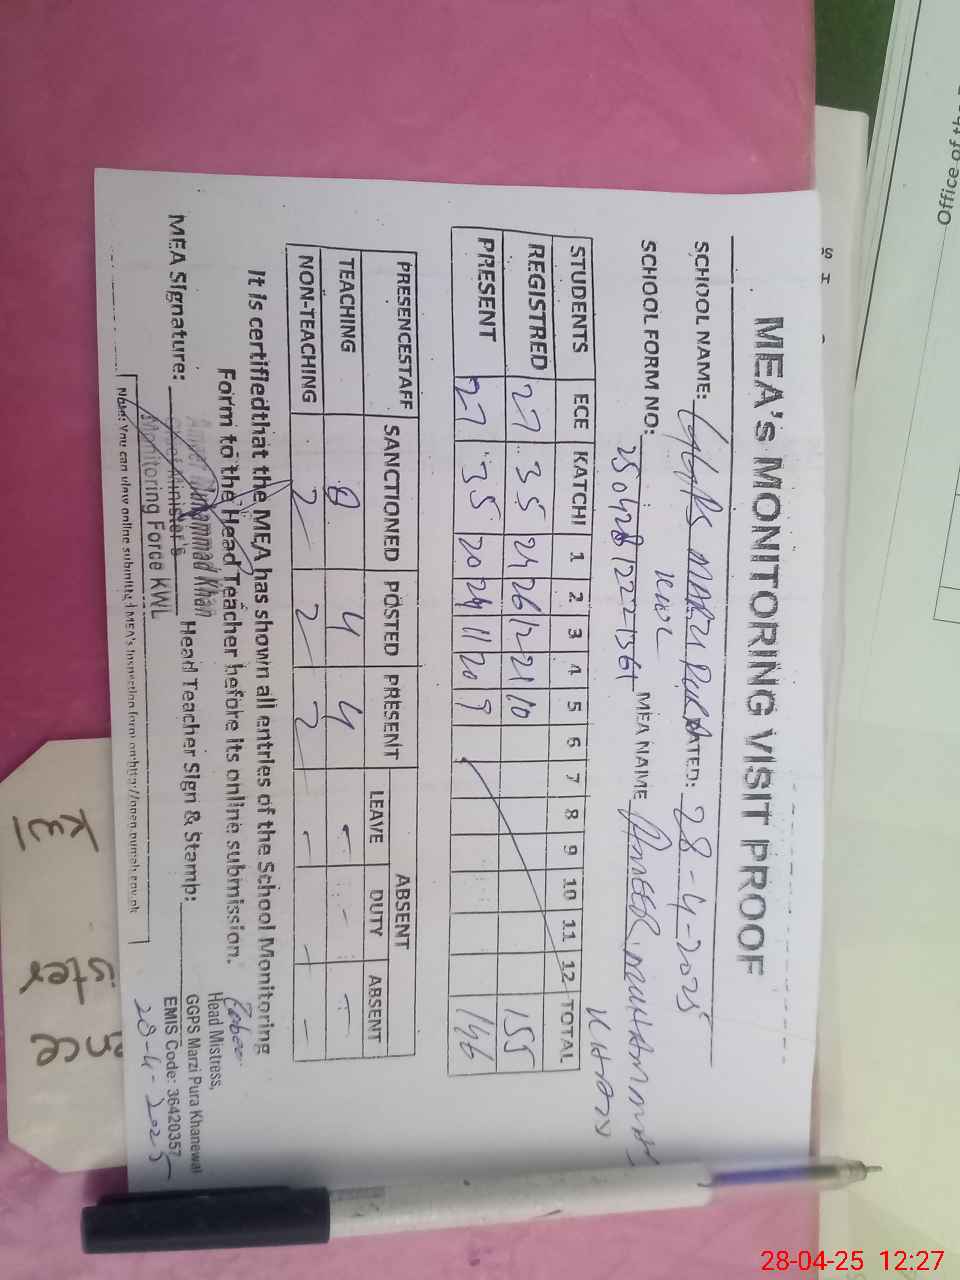 MEA's MONITORING VISIT PROOF
SCHOOL NAME: GGPS MARZI PURA DATED: 28-4-2025
KWL
SCHOOL FORM NO: MEA NAME AMEER MUHAMMAD
KHAN
STUDENTS ECE KATCHI 1 2 3 4 5 6 7 8 9 10 11 12 TOTAL
REGISTRED 27 35 24 26 12 21 10 155
PRESENT 27 35 20 24 11 20 9 146
PRESENCESTAFF SANCTIONED POSTED PRESENT ABSENT
LEAVE DUTY ABSENT
TEACHING 8 4 4 - - -
NON-TEACHING 2 2 2 - - -
It is certifiedthat the MEA has shown all entries of the School Monitoring
Form to the Head Teacher before its online submission.
MEA Signature: Head Teacher Sign & Stamp:
Ameer Muhammad Khan
Chief Minister's
Monitoring Force KWL
Head Mistress,
GGPS Marzi Pura Khanewal
EMIS Code: 36420357
28-4-2025
Note: You can view online submitted MEA's inspection form on
Office of the
KWL
28-04-25 12:27